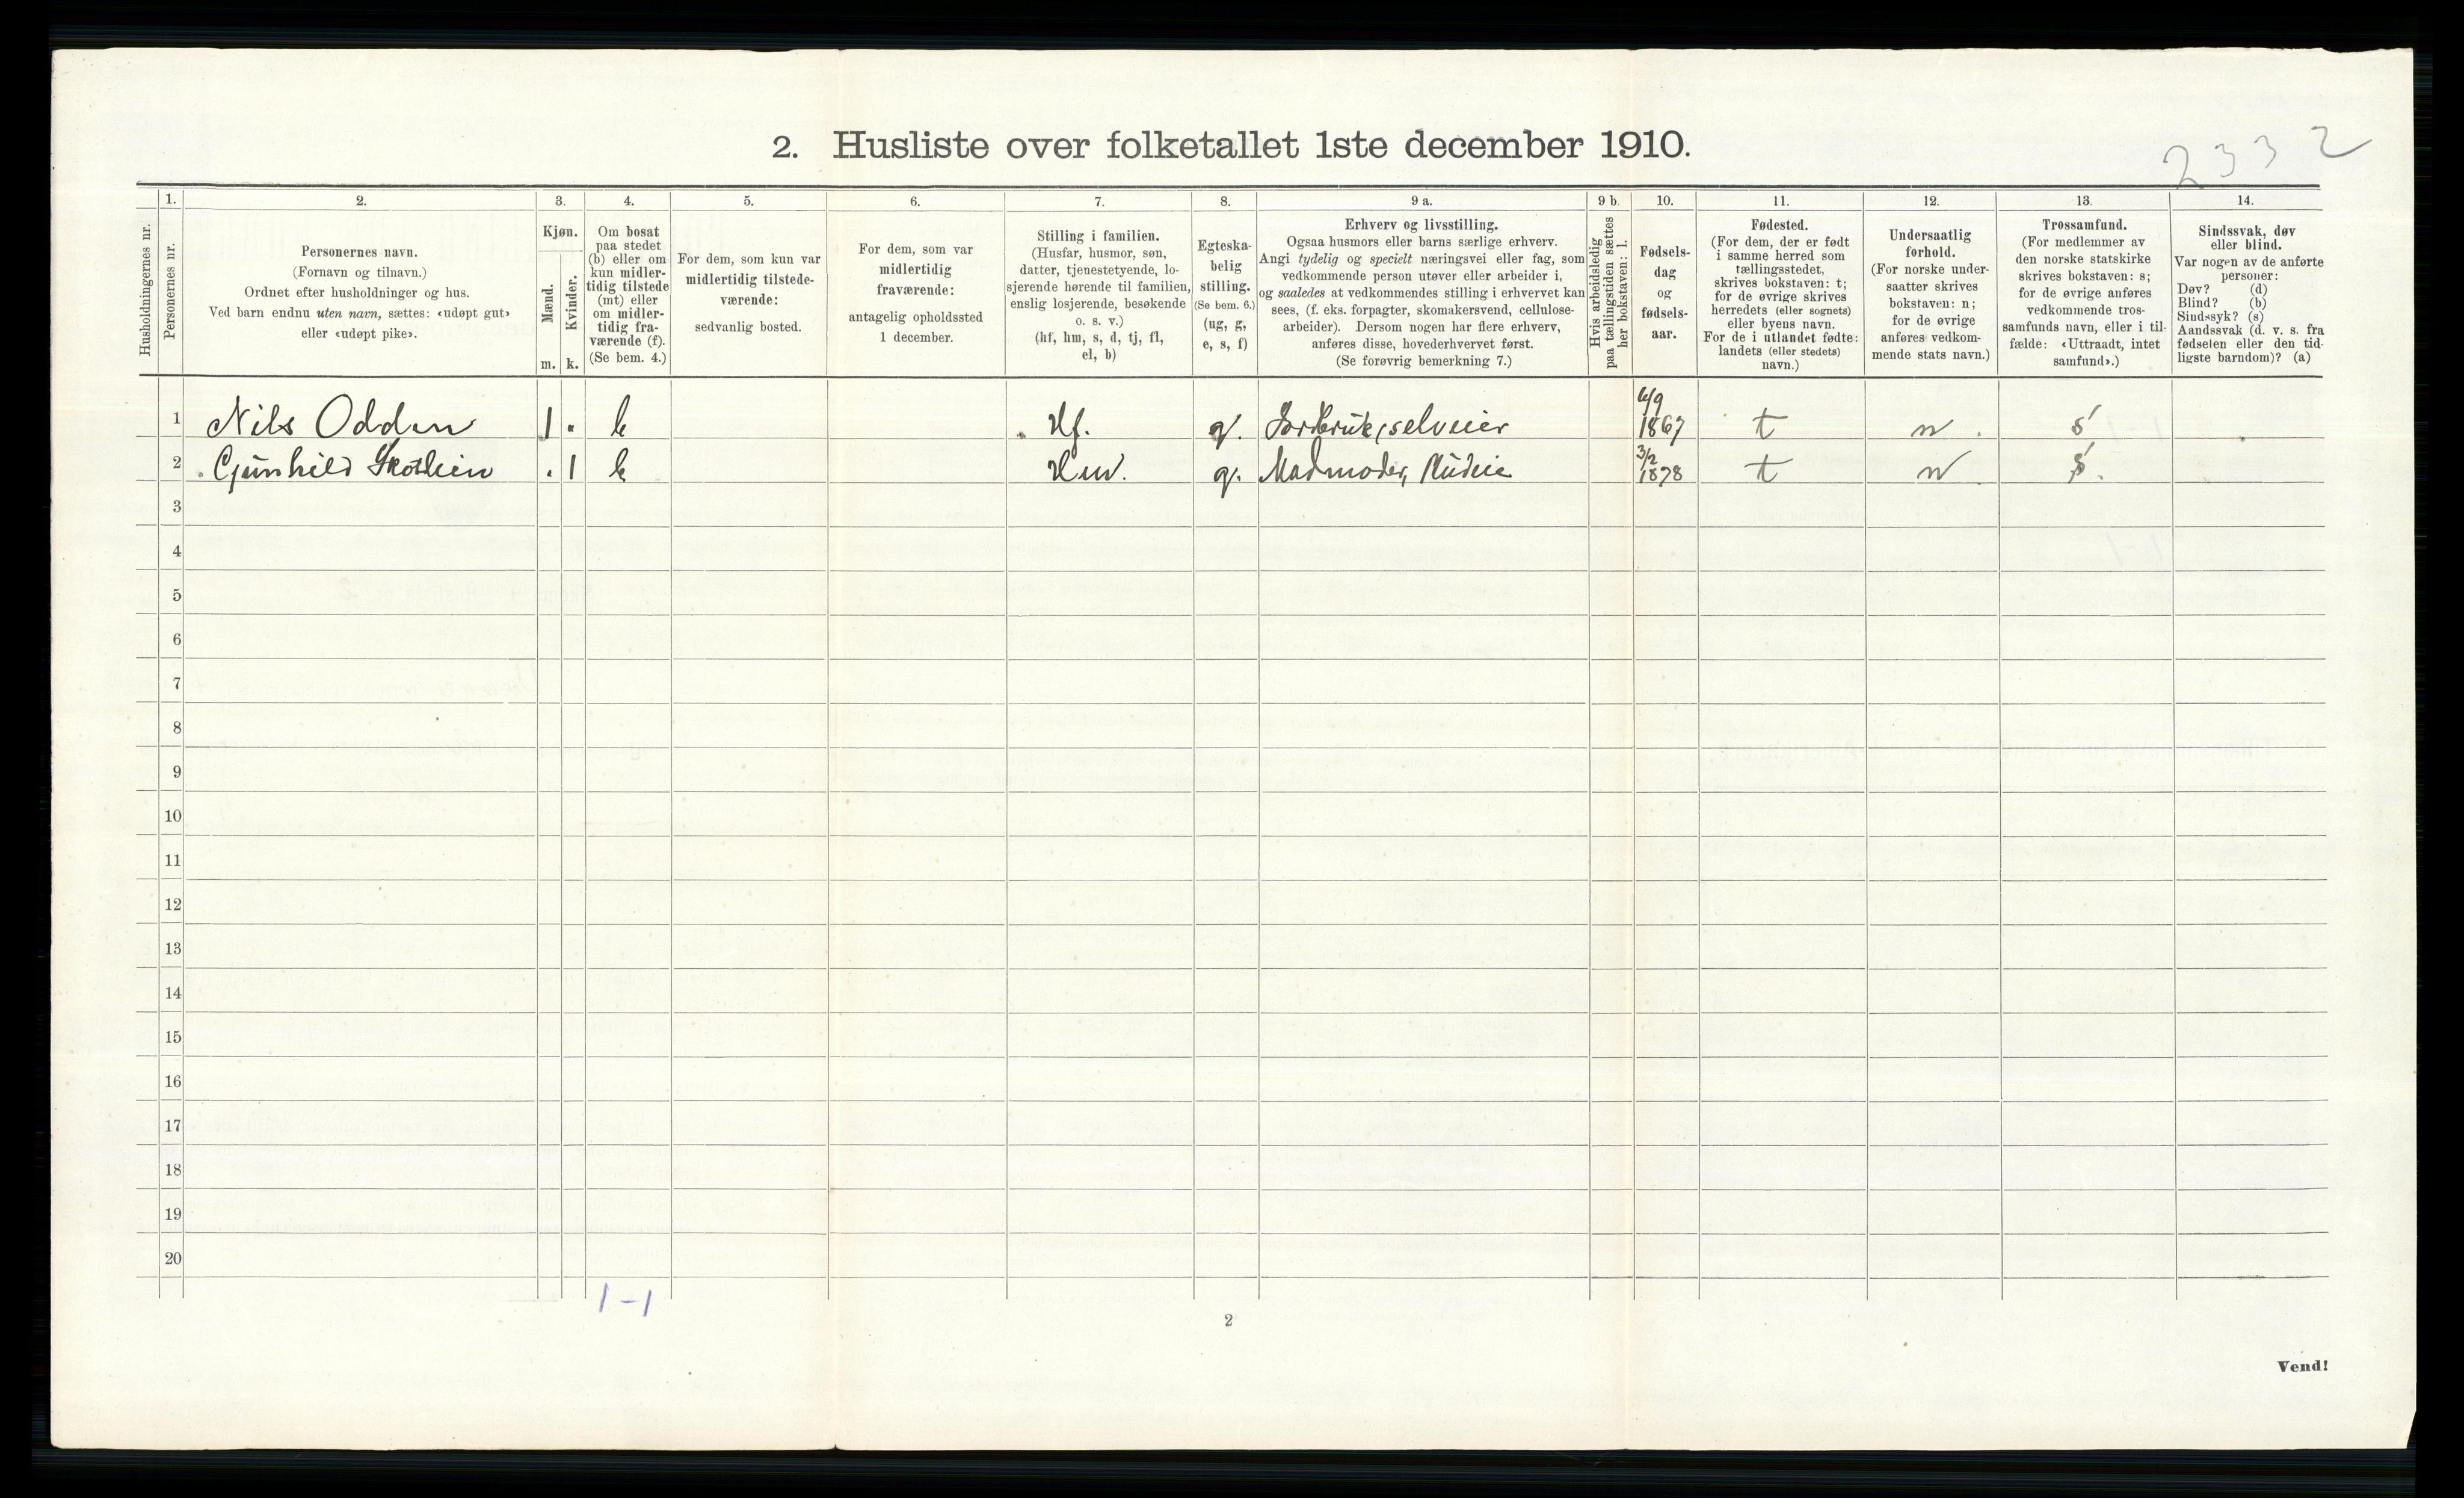 2. Husliste over folketallet 1ste december 1910.
2332
Husholdningernes nr.
1.
Personernes nr.
2.
Personernes navn.
(Fornavn og tilnavn.)
Ordnet efter husholdninger og hus.
Ved barn endnu uten navn, sættes: «udøpt gut»
eller «udøpt pike».
3.
Kjøn.
Mænd.
Kvinder.
m. k.
4.
Om bosat
paa stedet
(b) eller om
kun midler-
tidig tilstede
(mt) eller
om midler-
tidig fra-
værende (f).
(Se bem. 4.)
5.
For dem, som kun var
midlertidig tilstede-
værende:
sedvanlig bosted.
6.
For dem, som var
midlertidig
fraværende:
antagelig opholdssted
1 december.
7.
Stilling i familien.
(Husfar, husmor, søn,
datter, tjenestetyende, lo-
sjerende hørende til familien,
enslig losjerende, besøkende
o. s. v.)
(hf, hm, s, d, tj, fl,
el, b)
8.
Egteska-
belig
stilling.
(Se bem. 6.)
(ug, g,
e, s, f)
9 a.
Erhverv og livsstilling.
Ogsaa husmors eller barns særlige erhverv.
Angi tydelig og specielt næringsvei eller fag, som
vedkommende person utøver eller arbeider i,
og saaledes at vedkommendes stilling i erhvervet kan
sees, (f. eks. forpagter, skomakersvend, cellulose-
arbeider). Dersom nogen har flere erhverv,
anføres disse, hovederhvervet først.
(Se forøvrig bemerkning 7.)
9 b.
Hvis arbeidsledig
paa tællingstiden sættes
her bokstaven: l.
10.
Fødsels-
dag
og
fødsels-
aar.
11.
Fødested.
(For dem, der er født
i samme herred som
tællingsstedet,
skrives bokstaven: t;
for de øvrige skrives
herredets (eller sognets)
eller byens navn.
For de i utlandet fødte:
landets (eller stedets)
navn.)
12.
Undersaatlig
forhold.
(For norske under-
saatter skrives
bokstaven: n;
for de øvrige
anføres vedkom-
mende stats navn.)
13.
Trossamfund.
(For medlemmer av
den norske statskirke
skrives bokstaven: s;
for de øvrige anføres
vedkommende tros-
samfunds navn, eller i til-
fælde: «Uttraadt, intet
samfund».)
14.
Sindssvak, døv
eller blind.
Var nogen av de anførte
personer:
Døv? (d)
Blind? (b)
Sindssyk? (s)
Aandssvak (d. v. s. fra
fødselen eller den tid-
ligste barndom)? (a)
1 Nils Odden 1 . b Hf. g. Jordbruk, selveier 6/9 1867 t n . s
2 Gunhild . 1 b Hm. g. Madmoder, 3/2 1878 t n . s.
3
4
5
6
7
8
9
10
11
12
13
14
15
16
17
18
19
20
1-1
2
Vend!